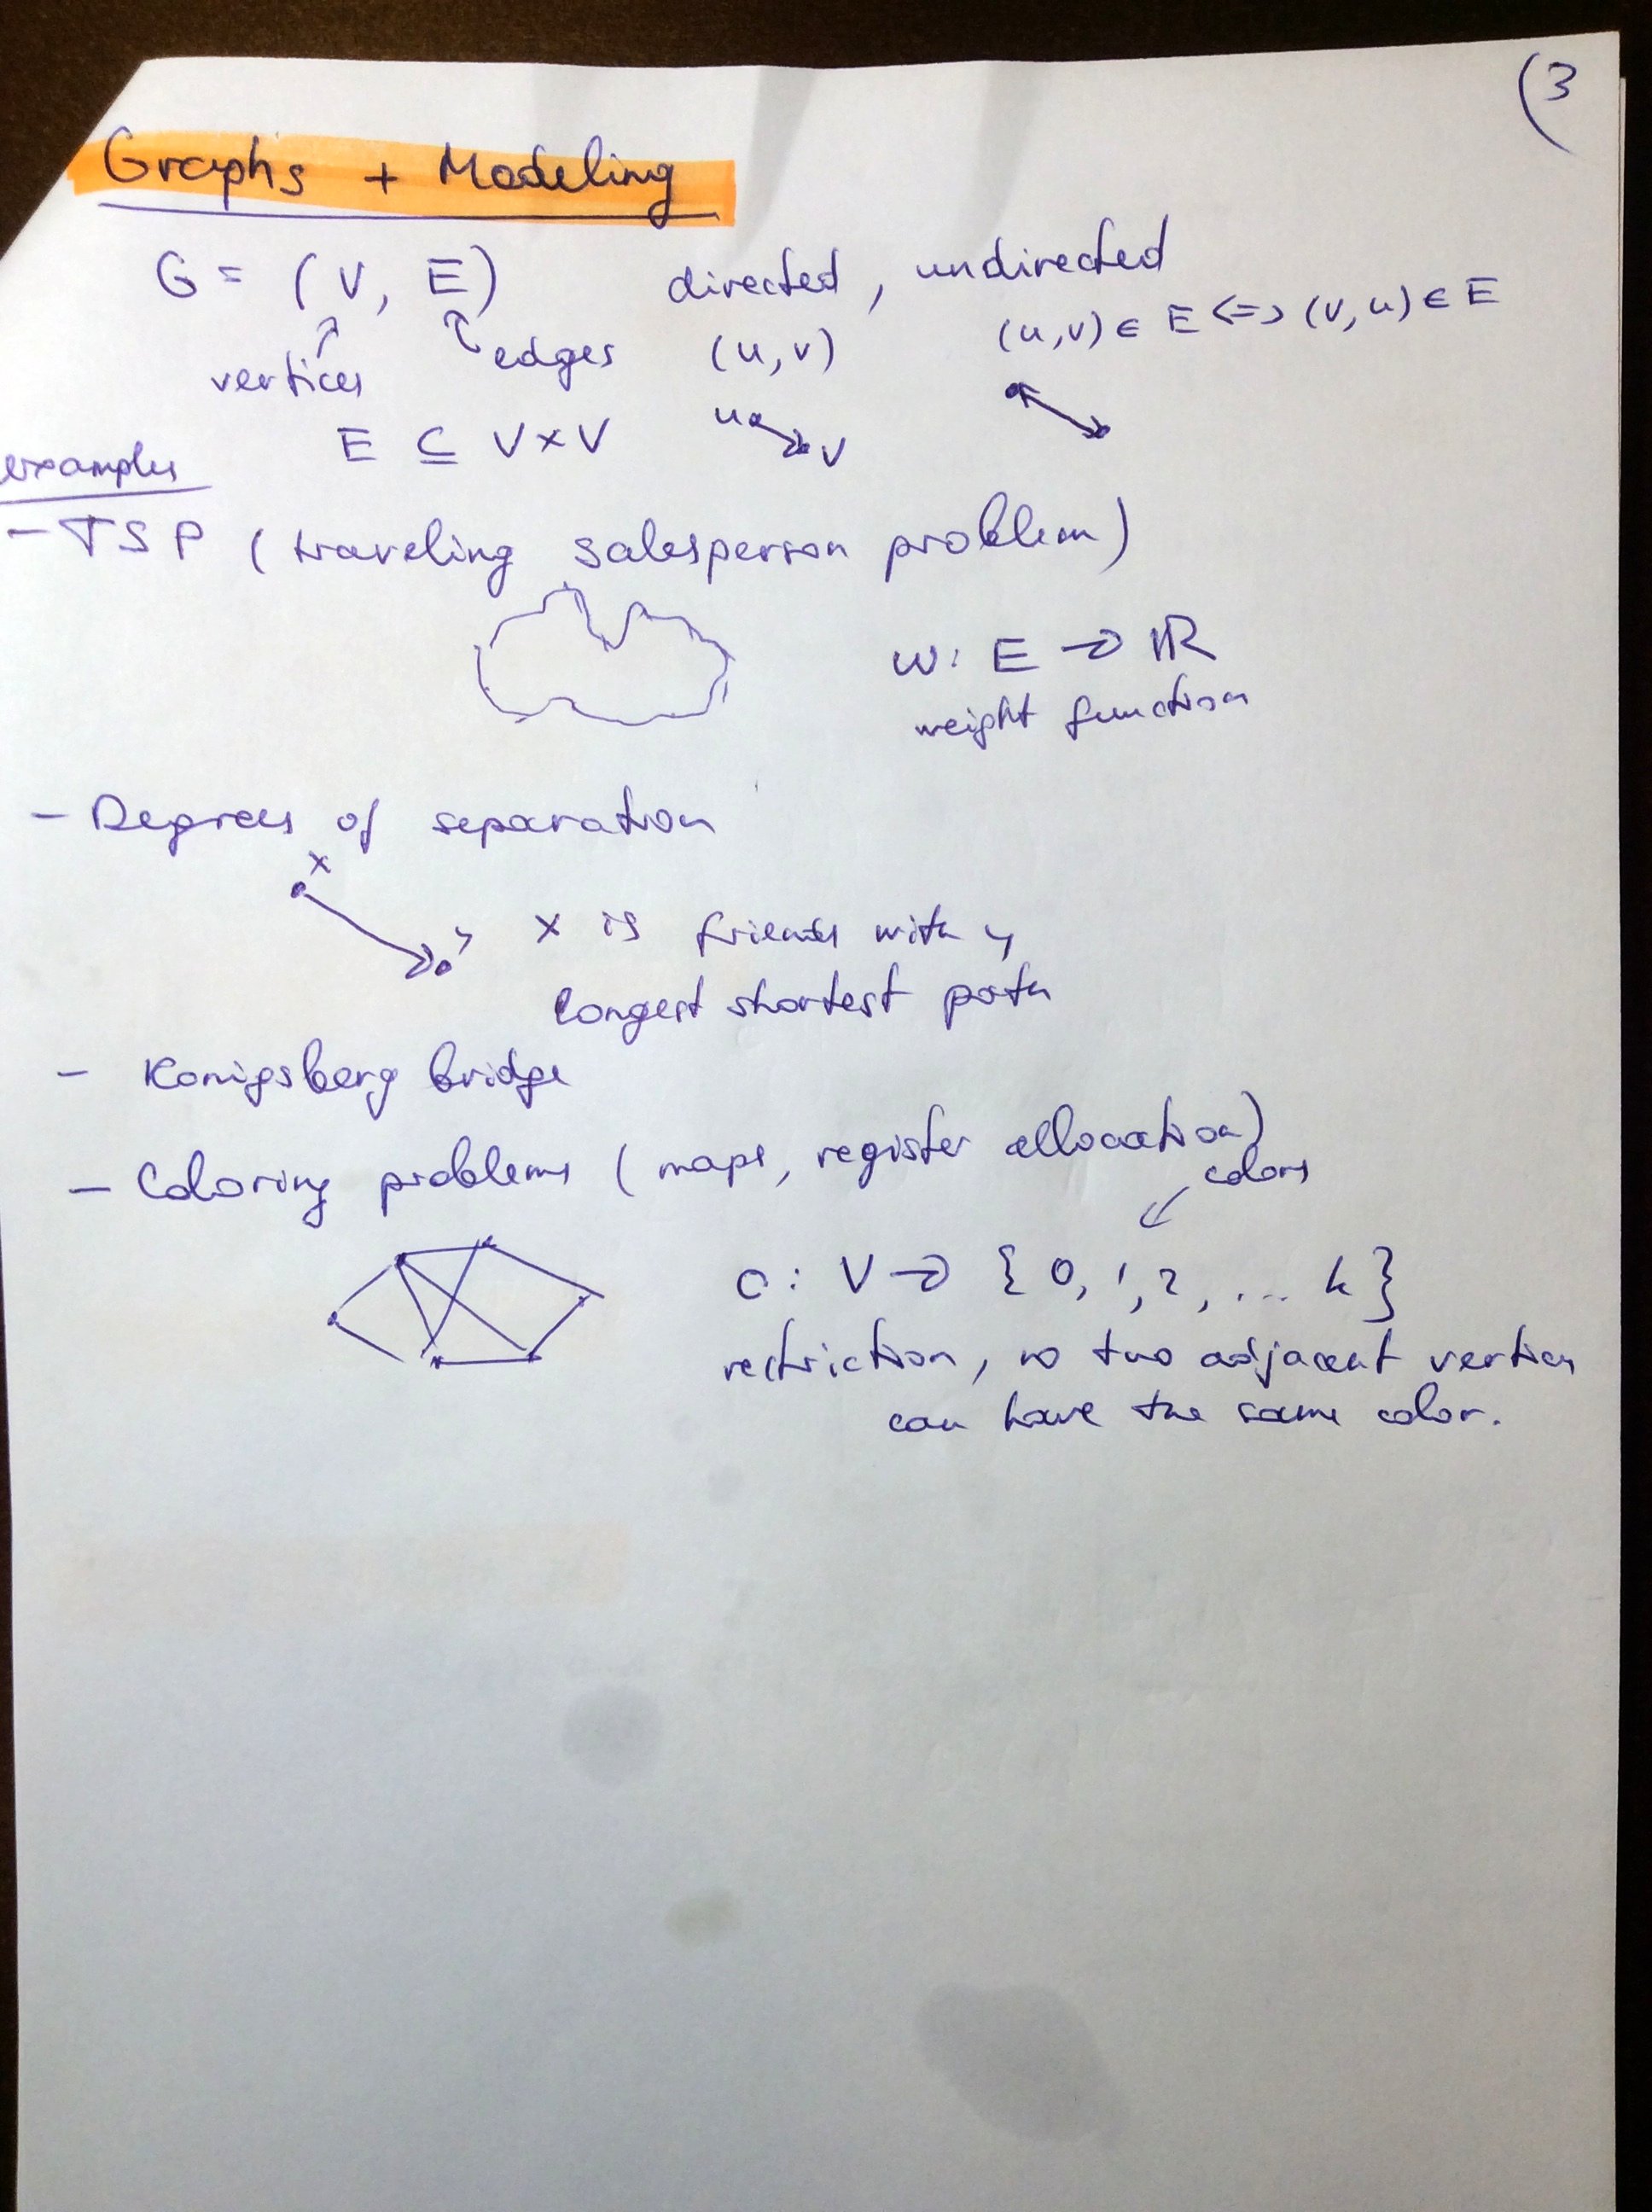 (3
Graphs + Modeling
G = (V, E) directed, undirected
vertices edges (u, v) (u, v) ∈ E <=> (v, u) ∈ E
E ⊆ V × V u v
examples
- TSP (traveling salesperson problem)
w: E → ℝ
weight function
- Degrees of separation
x
y x is friends with y
longest shortest path
- Konigsberg bridge
- Coloring problems (maps, register allocation)
colors
c: V → {0, 1, 2, ... k}
restriction, no two adjacent vertices
can have the same color.